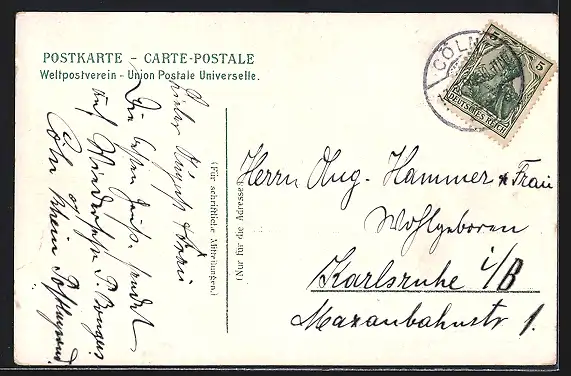 POSTKARTE – CARTE-POSTALE
Weltpostverein – Union Postale Universelle.
CÖLN
5 5
DEUTSCHES REICH
(Für schriftliche Mitteilungen.)
(Nur für die Adresse)
Die besten Grüße sendet
auf Wiedersehn
Cöln Rhein
Herrn Aug. Hammer & Frau
Wohlgeboren
Karlsruhe i/B
Maxaubahnstr 1.